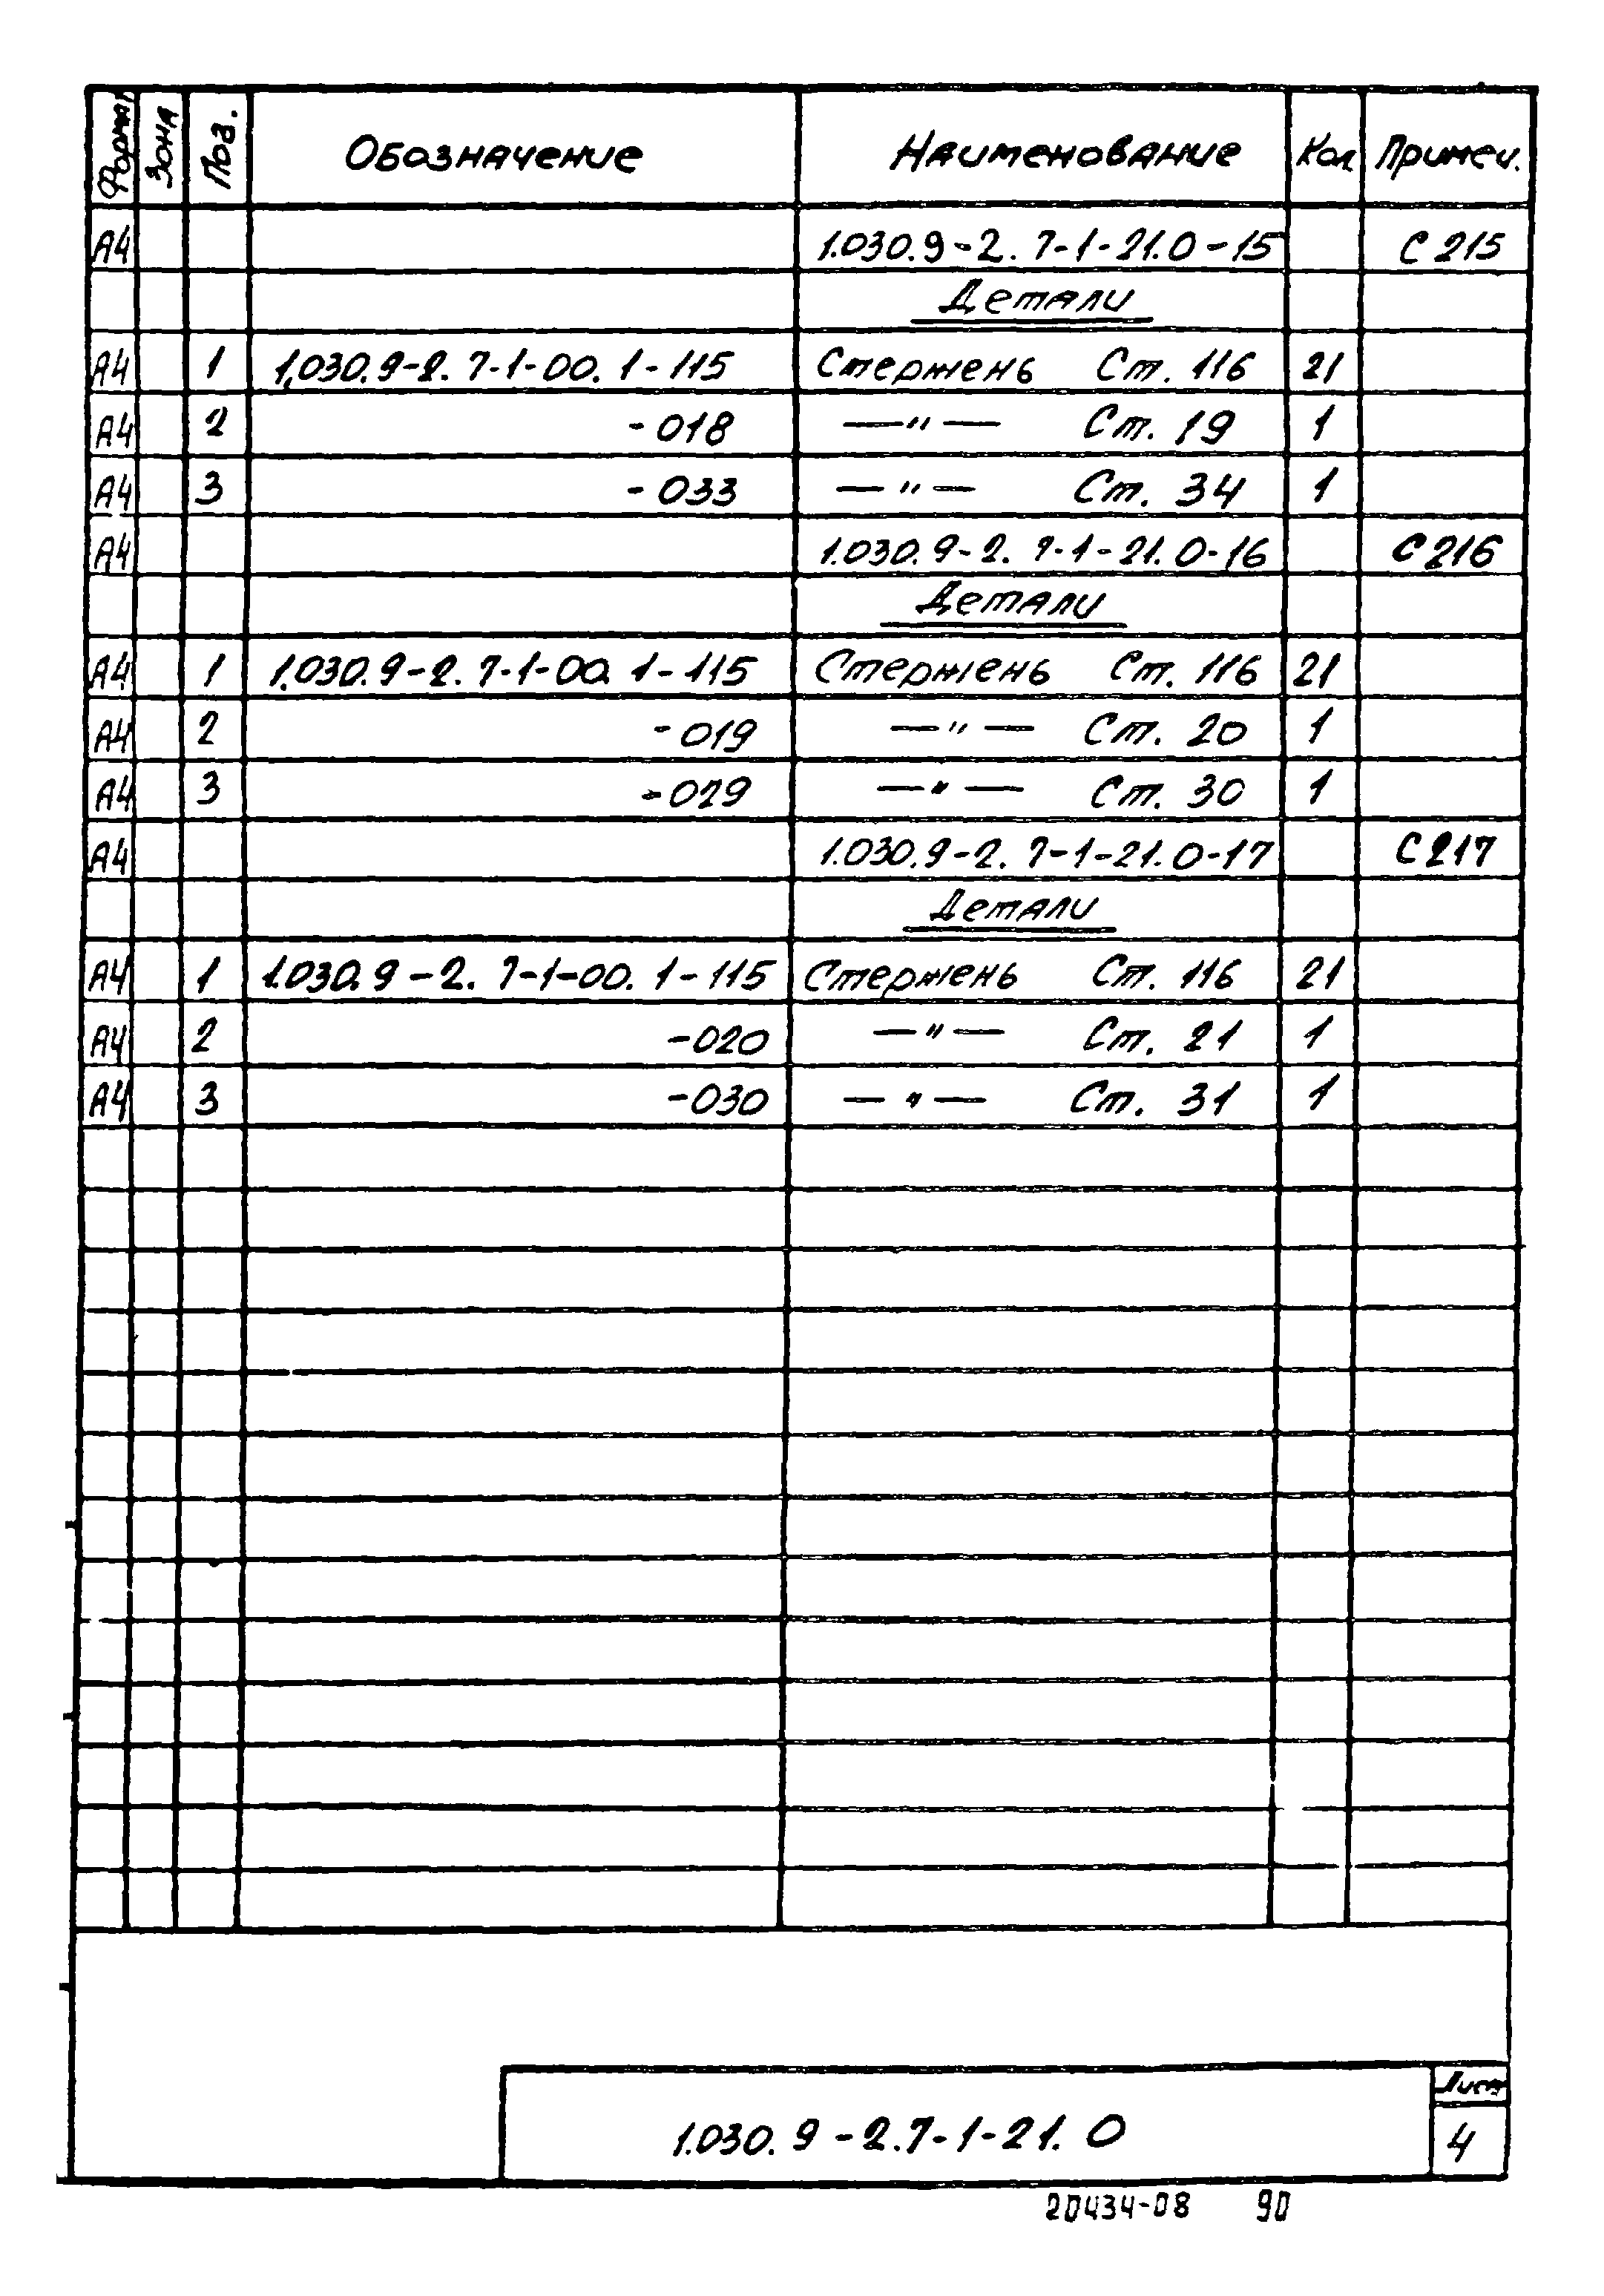 Формат Зона Поз. Обозначение Наименование Кол Примеч.
А4 1.030.9-2. 7-1-21.0-15 С 215
Детали
А4 1 1.030.9-2. 7-1-00. 1-115 Стержень Ст. 116 21
А4 2 -018 —"— Ст. 19 1
А4 3 -033 —"— Ст. 34 1
А4 1.030.9-2. 7-1-21.0-16 С 216
Детали
А4 1 1.030.9-2. 7-1-00. 1-115 Стержень Ст. 116 21
А4 2 -019 —"— Ст. 20 1
А4 3 -029 —"— Ст. 30 1
А4 1.030.9-2. 7-1-21.0-17 С 217
Детали
А4 1 1.030.9-2. 7-1-00. 1-115 Стержень Ст. 116 21
А4 2 -020 —"— Ст. 21 1
А4 3 -030 —"— Ст. 31 1
Лист
1.030.9-2.7-1-21.0 4
20434-08 90